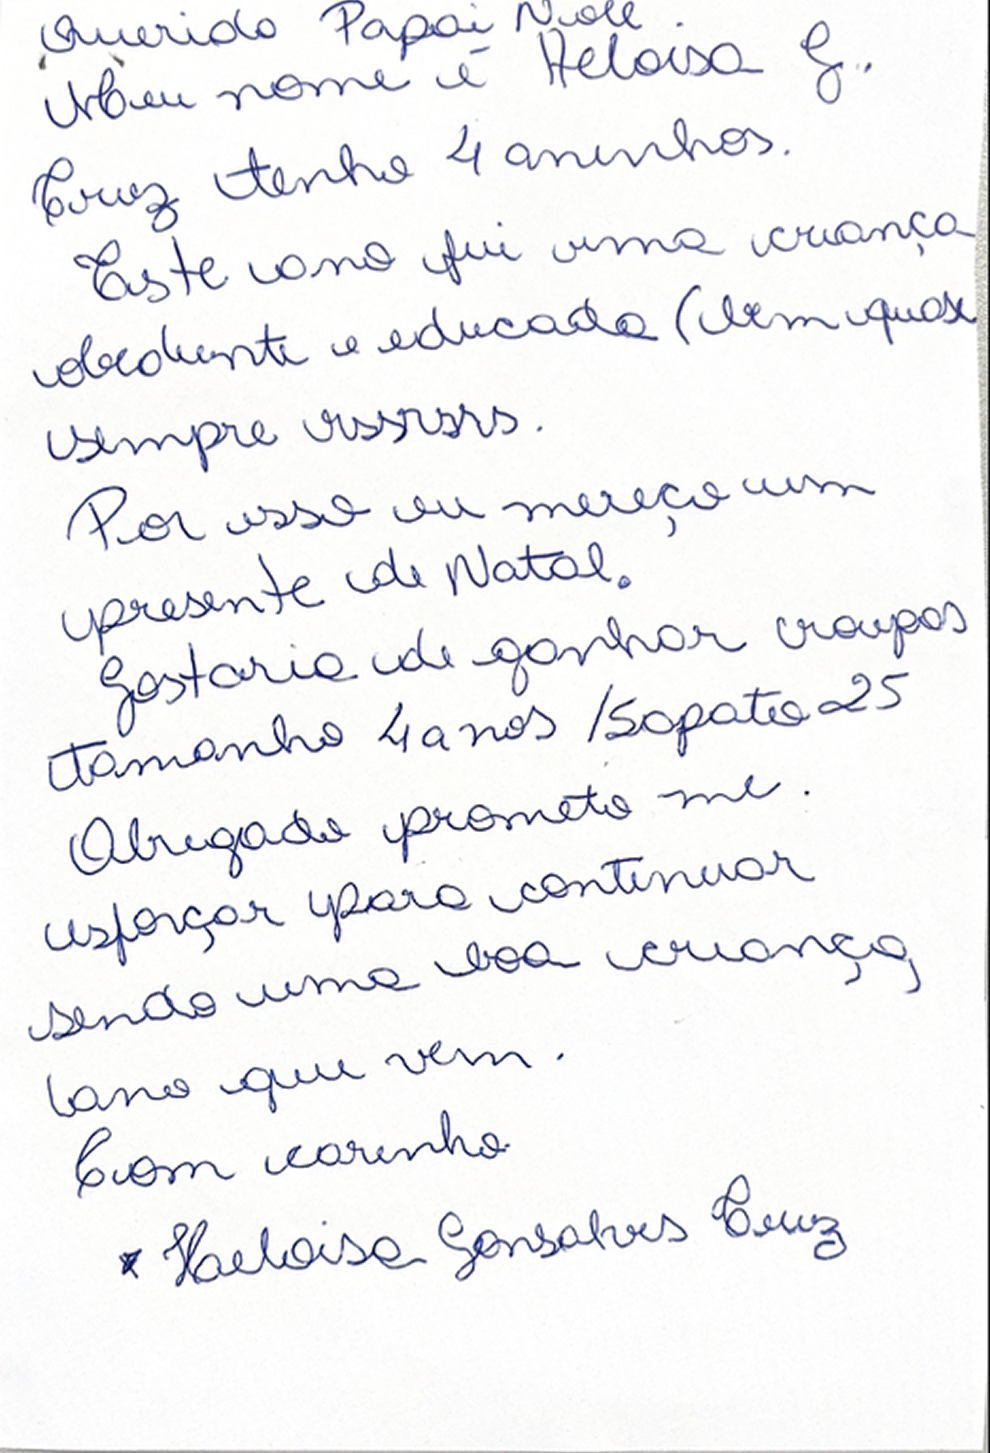 Querido Papai Noel.
Meu nome é Heloisa G.
Cruz tenho 4 aninhos.
Este ano fui uma criança
obediente e educada (bem quase
sempre rssrsrs.
Por isso eu mereço um
presente de Natal.
Gostaria de ganhar roupas
tamanho 4 anos / Sapato 25
Obrigado prometo me.
esforçar para continuar
sendo uma boa criança,
ano que vem.
Com carinho
* Heloisa Gonsalves Cruz